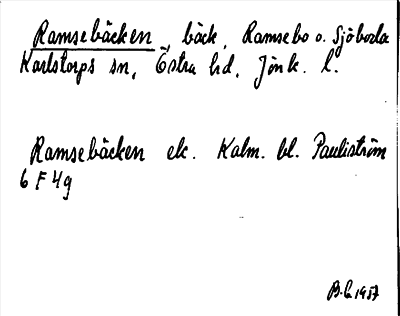 Ramsebäcken, bäck, Ramsebo o. Sjöboda
Karlstorps sn, Östra hd, Jönk. l.
Ramsebäcken ek. Kalm. bl. Pauliström
6 F 4g
1957